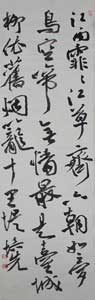 江雨霏〻江草齊六朝如夢
鳥空啼無情最是臺城
柳依舊烟籠十里堤